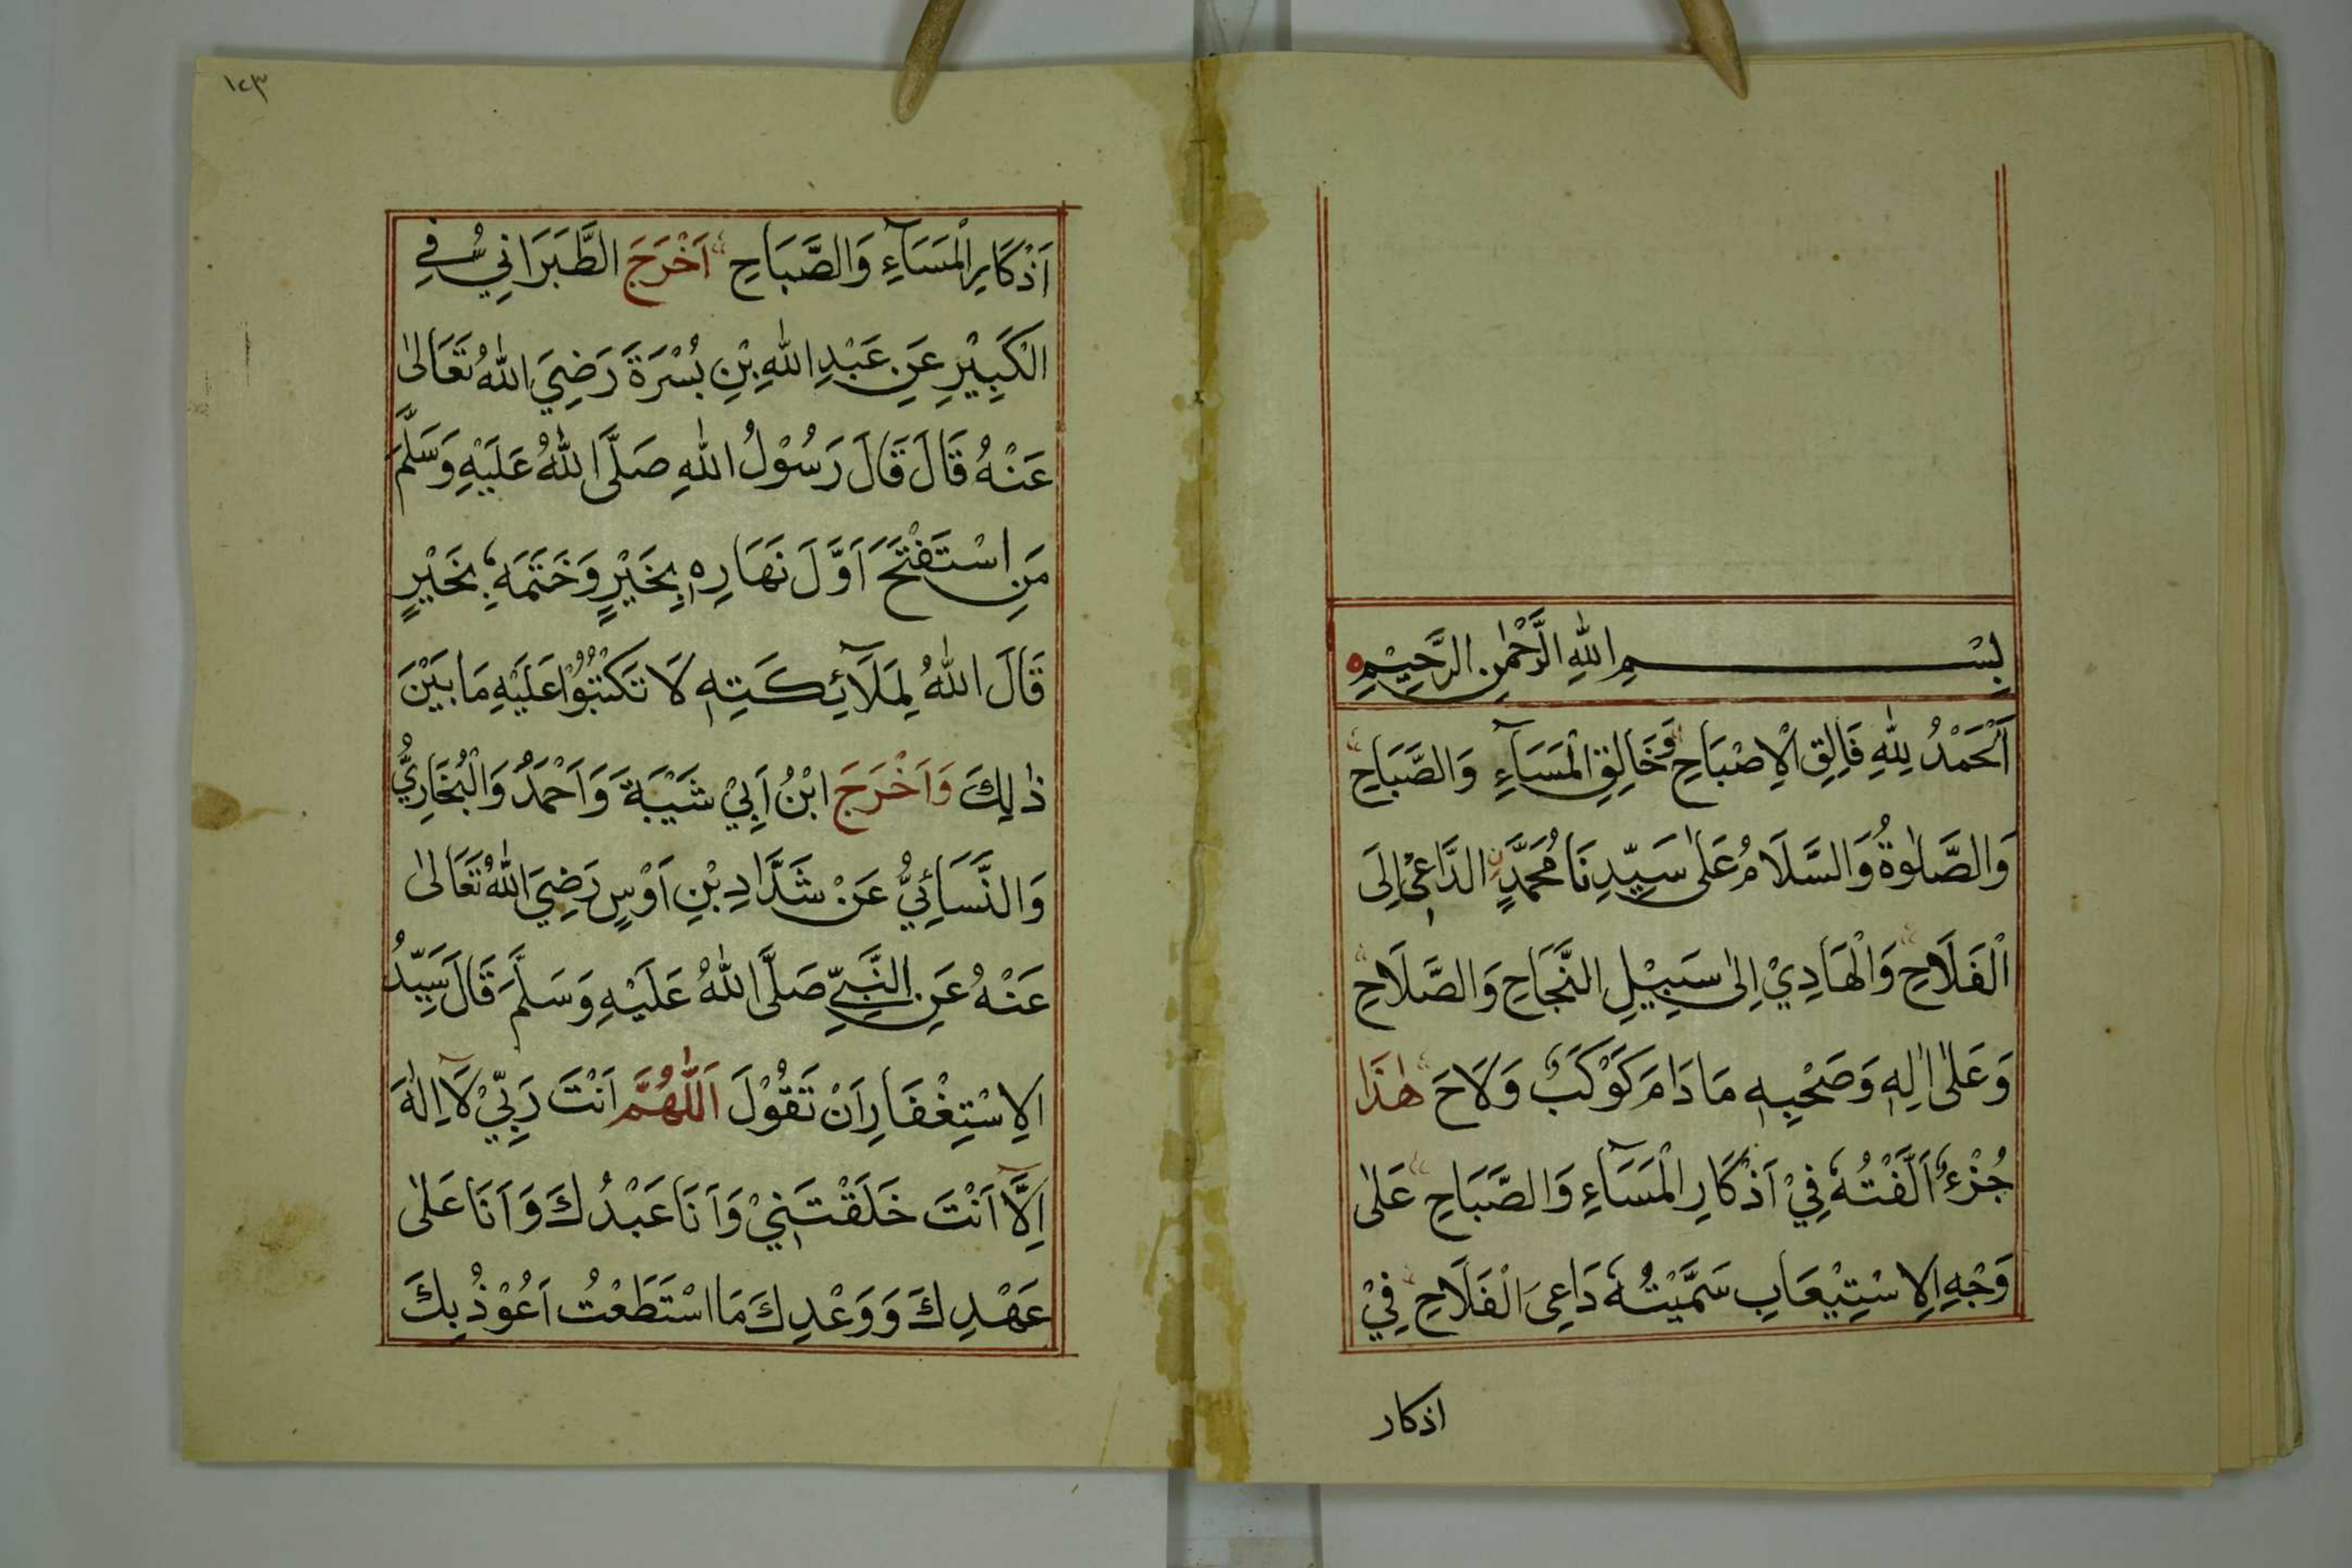 بِسْمِ اللهِ الرَّحْمٰنِ الرَّحِيْمِ
اَلْحَمْدُ لِلّٰهِ فَالِقِ الْاِصْبَاحِ وَخَالِقِ الْمَسَآءِ وَالصَّبَاحِ
وَالصَّلٰوةُ وَالسَّلَامُ عَلٰى سَيِّدِنَا مُحَمَّدٍ الدَّاعِيْ اِلَى
الْفَلَاحِ وَالْهَادِيْ اِلٰى سَبِيْلِ النَّجَاحِ وَالصَّلَاحِ
وَعَلٰى اٰلِهٖ وَصَحْبِهٖ مَا دَامَ كَوْكَبٌ وَلَاحَ هٰذَا
جُزْءٌ اَلَّفْتُهٗ فِيْ اَذْكَارِ الْمَسَآءِ وَالصَّبَاحِ عَلٰى
وَجْهِ الِاسْتِيْعَابِ سَمَّيْتُهٗ دَاعِيَ الْفَلَاحِ فِيْ
اذكار
١٢٣
اَذْكَارِ الْمَسَآءِ وَالصَّبَاحِ اَخْرَجَ الطَّبَرَانِيُّ فِي
الْكَبِيْرِ عَنْ عَبْدِ اللهِ بْنِ بُسْرَةَ رَضِيَ اللهُ تَعَالٰى
عَنْهُ قَالَ قَالَ رَسُوْلُ اللهِ صَلَّى اللهُ عَلَيْهِ وَسَلَّمَ
مَنِ اسْتَفْتَحَ اَوَّلَ نَهَارِهٖ بِخَيْرٍ وَخَتَمَهٗ بِخَيْرٍ
قَالَ اللهُ لِمَلَآئِكَتِهٖ لَا تَكْتُبُوْا عَلَيْهِ مَا بَيْنَ
ذٰلِكَ وَاَخْرَجَ ابْنُ اَبِيْ شَيْبَةَ وَاَحْمَدُ وَالْبُخَارِيُّ
وَالنَّسَائِيُّ عَنْ شَدَّادِ بْنِ اَوْسٍ رَضِيَ اللهُ تَعَالٰى
عَنْهُ عَنِ النَّبِيِّ صَلَّى اللهُ عَلَيْهِ وَسَلَّمَ قَالَ سَيِّدُ
الِاسْتِغْفَارِ اَنْ تَقُوْلَ اَللّٰهُمَّ اَنْتَ رَبِّيْ لَا اِلٰهَ
اِلَّا اَنْتَ خَلَقْتَنِيْ وَاَنَا عَبْدُكَ وَاَنَا عَلٰى
عَهْدِكَ وَوَعْدِكَ مَا اسْتَطَعْتُ اَعُوْذُ بِكَ